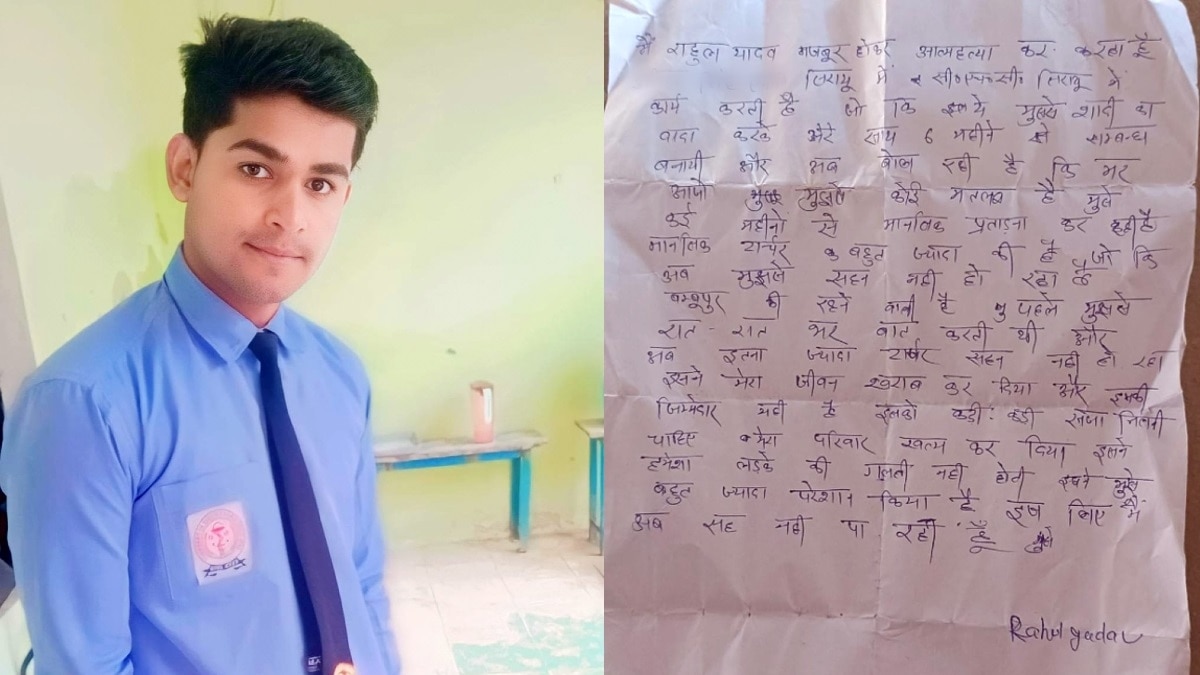 मैं राहुल यादव मजबूर होकर आत्महत्या कर करहा हूँ
में सी०एच०सी० में
कार्य करती है जो कि इसने मुझसे शादी का
वादा करके मेरे साथ 6 महीने से सम्बन्ध
बनायी और अब बोल रही है कि मर
जाओ मुझसे कोई मतलब है मुझे
कई महीनो से मानसिक प्रताड़ना कर रही है
मानसिक टार्चर बहुत ज्यादा की है जो कि
अब मुझसे सहन नही हो रहा है
की रहने वाली है पहले मुझसे
रात - रात भर बात करती थी और
अब इतना ज्यादा टार्चर सहन नही हो रहा
इसने मेरा जीवन खराब कर दिया और इसकी
जिम्मेदार यही है इसको कड़ी: कड़ी सजा मिलनी
चाहिए मेरा परिवार खत्म कर दिया इसने
हमेशा लड़के की गलती नही होती इसने मुझे
बहुत ज्यादा परेशान किया है इस लिए मैं
अब सह नही पा रहा हूँ मुझे
Rahul yadav